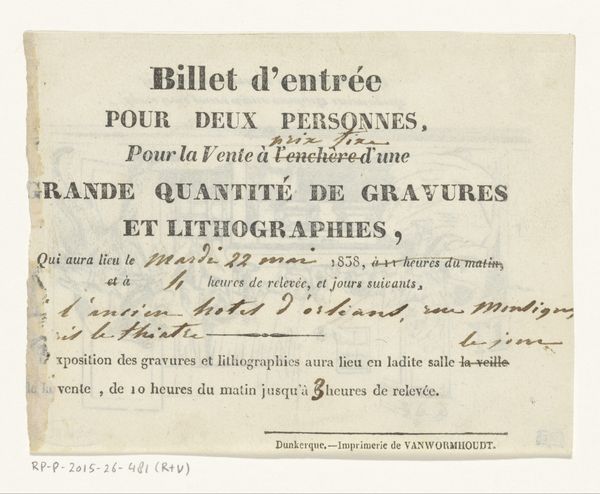 Billet d'entrée
POUR DEUX PERSONNES,
prix fixe
Pour la Vente à l'enchère d'une
GRANDE QUANTITÉ DE GRAVURES
ET LITHOGRAPHIES,
Qui aura lieu le mardi 22 mai 1838, à 11 heures du matin,
et à 4 heures de relevée, et jours suivants,
à l'ancien hotel d'orléans, rue Monsigny,
le théatre
le jour
exposition des gravures et lithographies aura lieu en ladite salle la veille
de la vente, de 10 heures du matin jusqu'à 3 heures de relevée.
Dunkerque.—Imprimerie de VANWORMHOUDT.
RP-P-2015-26-481 (R+V)